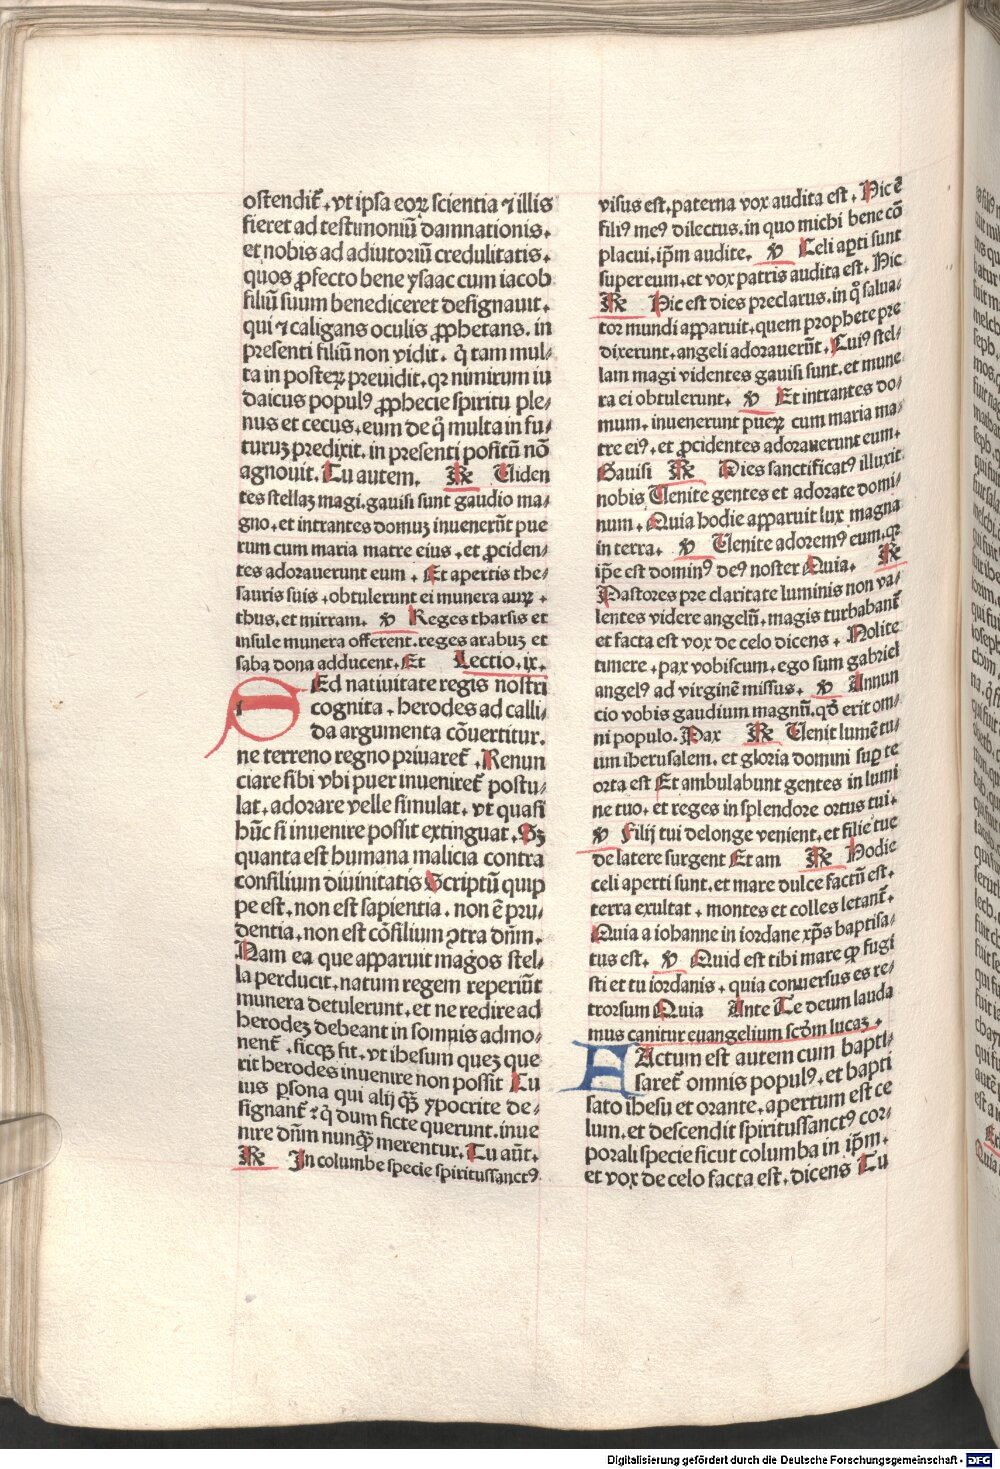 ostendit̄ . vt ipsa eoꝝ scientia ⁊ illis
fieret ad testimoniū damnationis .
et nobis ad adiutoriū credulitatis .
quos ꝓfecto bene ysaac cum iacob
filiū suum benediceret designauit .
qui ⁊ caligans oculis ꝓphetans . in
presenti filiū non vidit . q̄ tam mul⸗
ta in posteꝝ preuidit . qꝛ nimirum iu
daicus populꝰ ꝓphecie spiritu ple⸗
nus et cecus . eum de q̄ multa in fu⸗
turuꝫ predixit . in presenti positū nō
agnouit . Tu autem . ℟ Uiden
tes stellaꝫ magi . gauisi sunt gaudio ma⸗
gno . et intrantes domuꝫ inuenerūt pue
rum cum maria matre eius . et ꝓciden⸗
tes adorauerunt eum . Et apertis the⸗
sauris suis . obtulerunt ei munera auꝝ .
thus . et mirram . ℣ Reges tharsis et
insule munera offerent . reges arabuꝫ et
saba dona adducent . Et Lectio . ix .
SEd natiuitate regis nostri
cognita . herodes ad calli⸗
da argumenta cōuertitur .
ne terreno regno priuaret̄ . Renun
ciare sibi vbi puer inueniret̄ postu⸗
lat . adorare velle simulat . vt quasi
hūc si inuenire possit extinguat . Sꝫ
quanta est humana malicia contra
consilium diuinitatis Scriptū quip
pe est . non est sapientia . non ē pru⸗
dentia . non est cōsilium ꝯtra dn̄m .
Nam ea que apparuit magos stel⸗
la perducit . natum regem reperiūt
munera detulerunt . et ne redire ad
herodeꝫ debeant in somnis admo⸗
nent̄ . sicqꝫ fit . vt ihesum queꝫ que
rit herodes inuenire non possit Cu
ius ꝑsona qui alij qꝫ̄ ypocrite de⸗
signant̄ ⁊ q̄ dum ficte querunt . inue
nire dn̄m nunqꝫ̄ merentur . Tu aūt .
℟ In columbe specie spiritussanctꝰ
visus est . paterna vox audita est . Hic ē
filiꝰ meꝰ dilectus . in quo michi bene cō
placui . ip̄m audite . ℣ Celi aꝑti sunt
super eum . et vox patris audita est . Hic
℟ Hic est dies preclarus . in q̄ salua⸗
tor mundi apparuit . quem prophete pre
dixerunt . angeli adorauerūt . Cuiꝰ stel⸗
lam magi videntes gauisi sunt . et mune
ra ei obtulerunt . ℣ Et intrantes do⸗
mum . inuenerunt pueꝝ cum maria ma⸗
tre eiꝰ . et ꝓcidentes adorauerunt eum .
Gauisi ℟ Dies sanctificatꝰ illuxit
nobis Uenite gentes et adorate domi⸗
num . Quia hodie apparuit lux magna
in terra . ℣ Uenite adoremꝰ eum . qꝛ
ip̄e est dominꝰ deꝰ noster Quia . ℟
Pastores pre claritate luminis non va⸗
lentes videre angelū . magis turbabant̄
et facta est vox de celo dicens . Nolite
timere . pax vobiscum . ego sum gabriel
angelꝰ ad virginē missus . ℣ Annun
cio vobis gaudium magnū . qd̄ erit om⸗
ni populo . Pax ℟ Uenit lumē tu⸗
um iherusalem . et gloria domini suꝑ te
orta est Et ambulabunt gentes in lumi
ne tuo . et reges in splendore ortus tui .
℣ Filij tui delonge venient . et filie tue
de latere surgent Et am ℟ Hodie
celi aperti sunt . et mare dulce factū est .
terra exultat . montes et colles letant̄ .
Quia a iohanne in iordane xp̄s baptisa⸗
tus est . ℣ Quid est tibi mare qꝫ fugi
sti et tu iordanis . quia conuersus es re⸗
trorsum Quia Ante Te deum lauda
mus canitur euangelium scd̄m lucaꝫ .
FActum est autem cum bapti⸗
saret̄ omnis populꝰ . et bapti
sato ihesu et orante . apertum est ce
lum . et descendit spiritussanctꝰ cor⸗
porali specie sicut columba in ip̄m .
et vox de celo facta est . dicens Tu
Digitalisierung gefördert durch die Deutsche Forschungsgemeinschaft - DFG